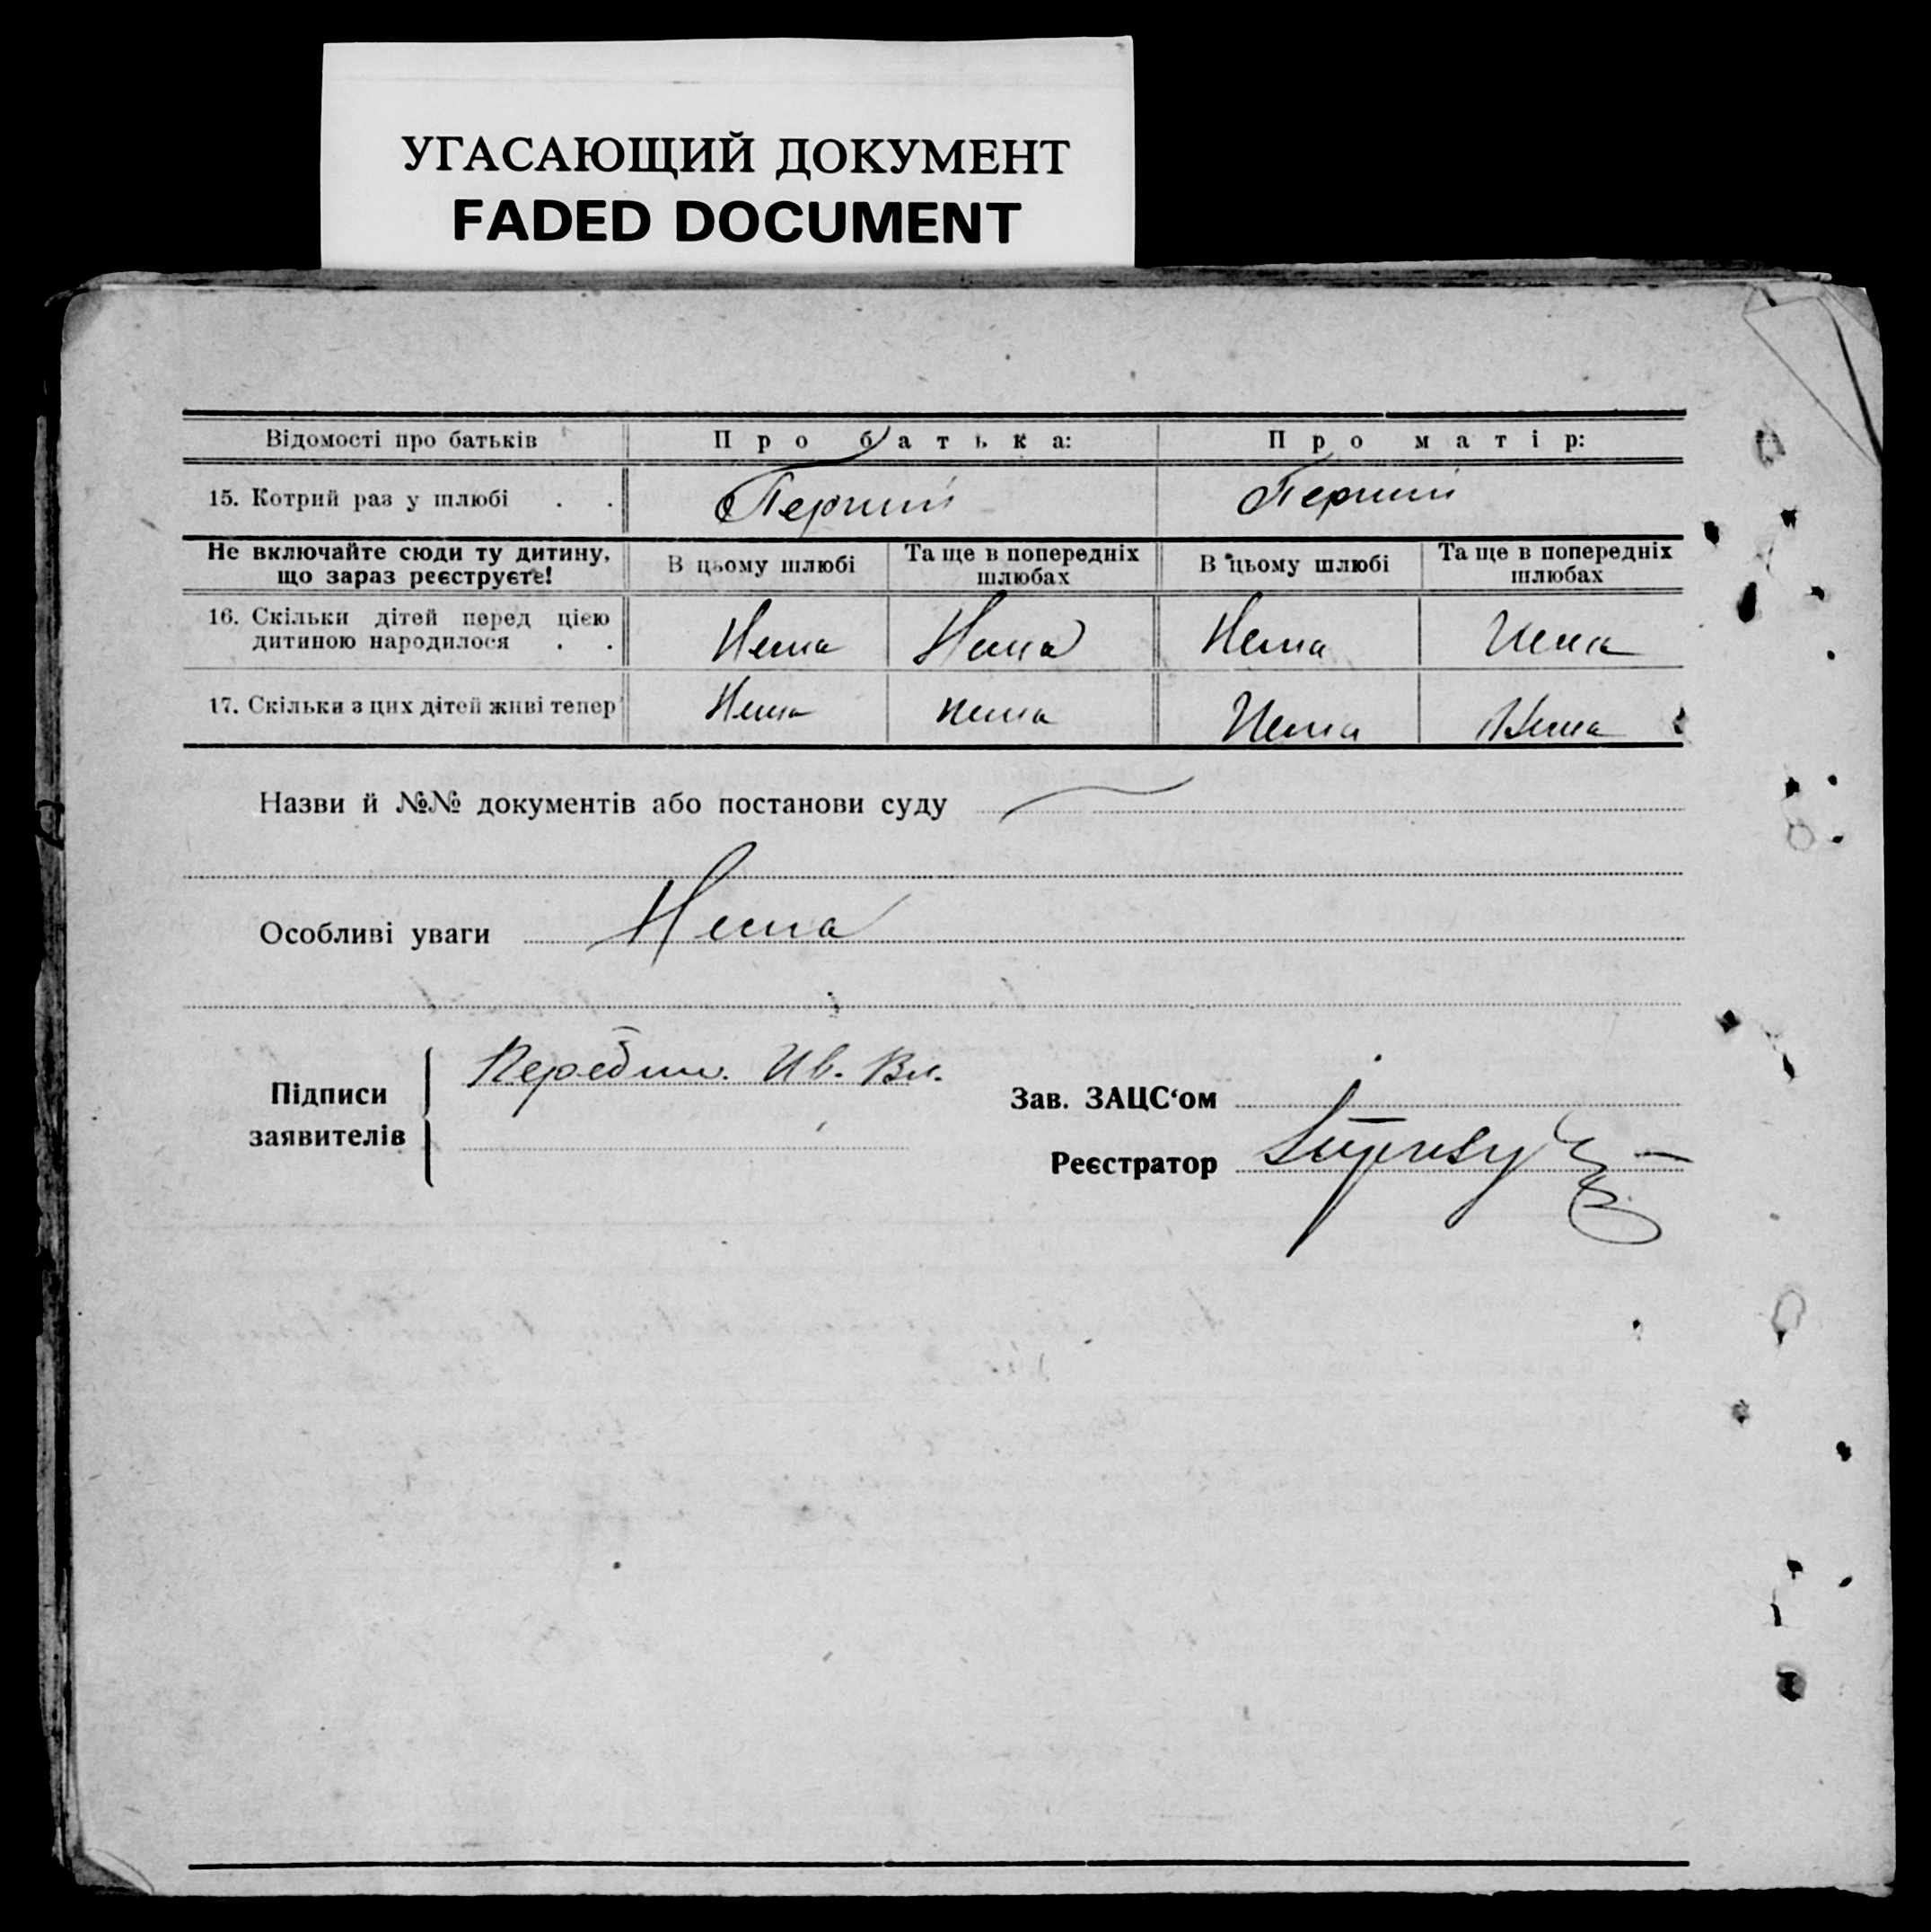 УГАСАЮЩИЙ ДОКУМЕНТ
FADED DOCUMENT
Відомості про батьків Про батька: Про матір:
15. Котрий раз у шлюбі . . Перший Перший
Не включайте сюди ту дитину, що зараз реєструєте! В цьому шлюбі Та ще в попередніх шлюбах В цьому шлюбі Та ще в попередніх шлюбах
16. Скільки дітей перед цією
дитиною народилося . . Нема Нема Нема Нема
17. Скільки з цих дітей живі тепер Нема нема Нема Нема
Назви й №№ документів або постанови суду
Особливі уваги Нема
Підписи
заявителів
Ив. Вл.
Зав. ЗАЦС‘ом
Реєстратор